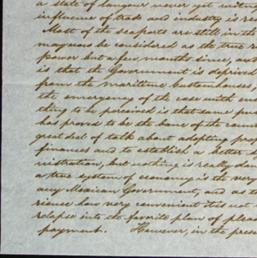 a state of languor never yet witne
influence of trade and industry is rea
Most of the seaports are still in the
may now be considered as the true
power but a few months since, and
is that the Government is deprived
from the maritime Customhouses,
the emergency of the case with
thing to be perceived is that same
has proved to be the bane of the count
great deal of talk about adopting
finances and to establish a better
nistration, but nothing is really don
a true system of economy is the very
any Mexican Government, and as to
rience how very convenient it is not
relapse into the favorite plan of
payment. However, in the presen